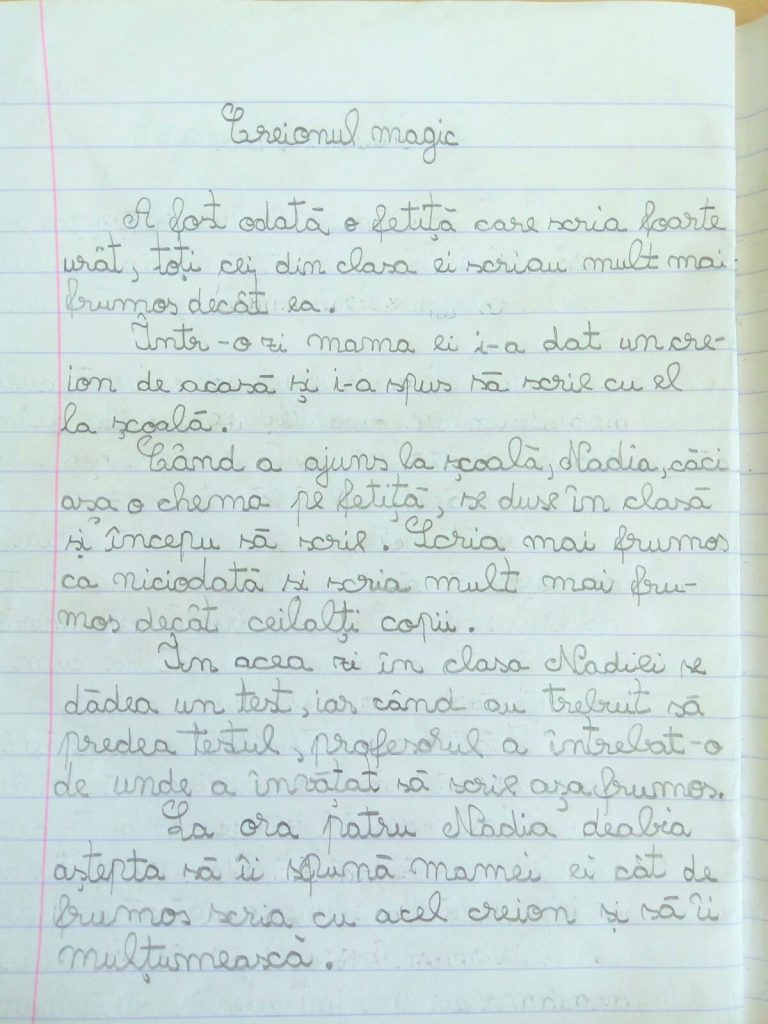 Creionul magic
A fost odată o fetiță care scria foarte
urât, toți cei din clasa ei scriau mult mai
frumos decât ea.
Într-o zi mama ei i-a dat un cre-
ion de acasă și i-a spus să scrie cu el
la școală.
Când a ajuns la școală, Nadia, căci
așa o chema pe fetiță, se duse în clasă
și începu să scrie. Scria mai frumos
ca niciodată si scria mult mai fru-
mos decât ceilalți copii.
În acea zi în clasa Nadiei se
dădea un test, iar când au trebuit să
predea testul, profesorul a întrebat-o
de unde a învățat să scrie așa frumos.
La ora patru Nadia deabia
aștepta să îi spună mamei ei cât de
frumos scria cu acel creion și să îi
mulțumească.